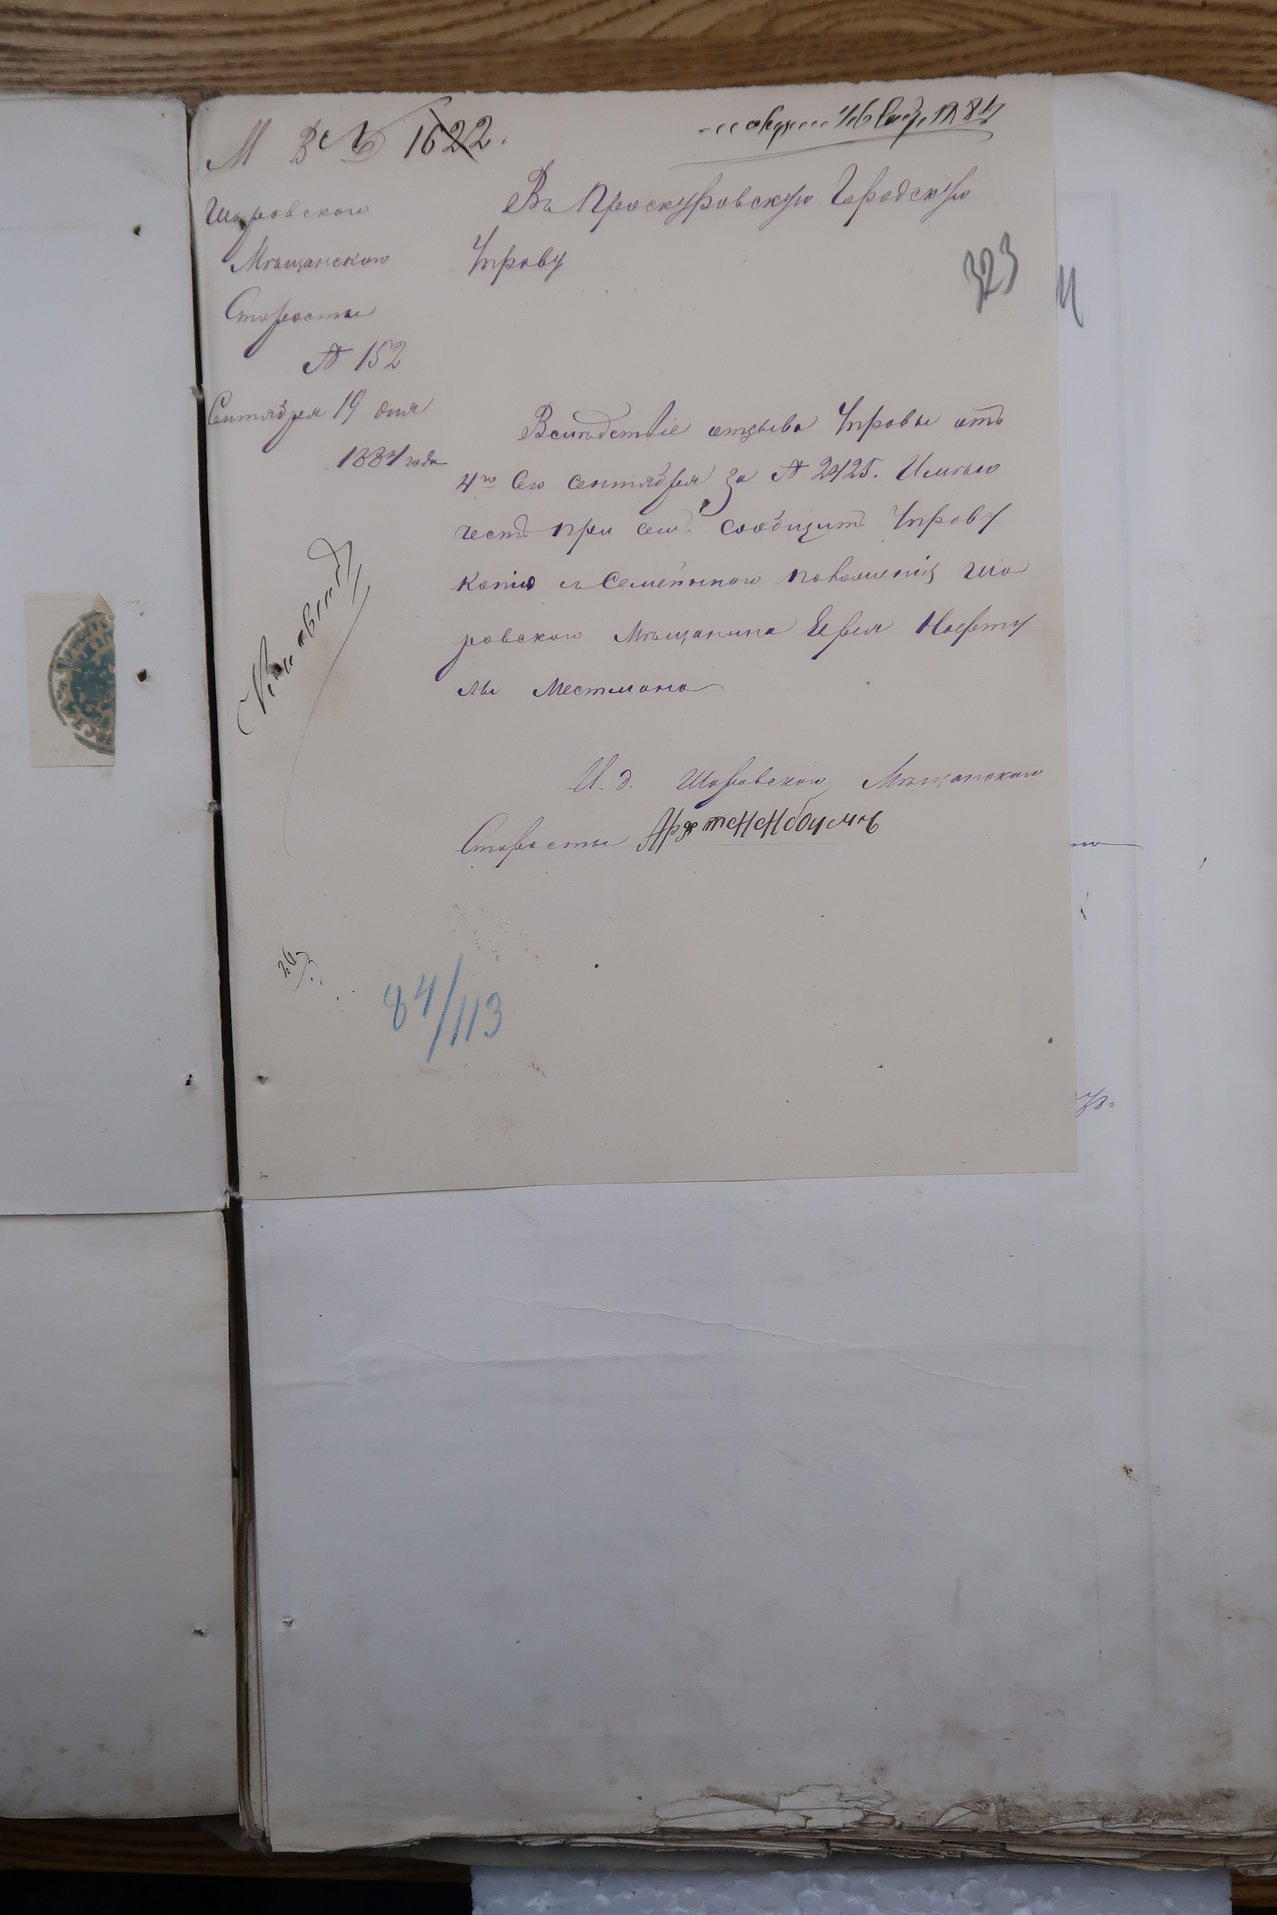 М В № 1622.
84
Шаровского
Мѣщанского
Старосты
№ 152
Сентября 19 дня
1884 года
Въ Проскуровскую Городскую
Управу
323
Вслѣдствіе отзыва Управы отъ
4го Сего Сентября за № 2425. Имѣю
честь при сем сообщить Управу
копію съ Семейнаго положенія Ша
ровского Мѣщанина
Местмана
И. д. Шаровского Мѣщанского
Старосты
84/113